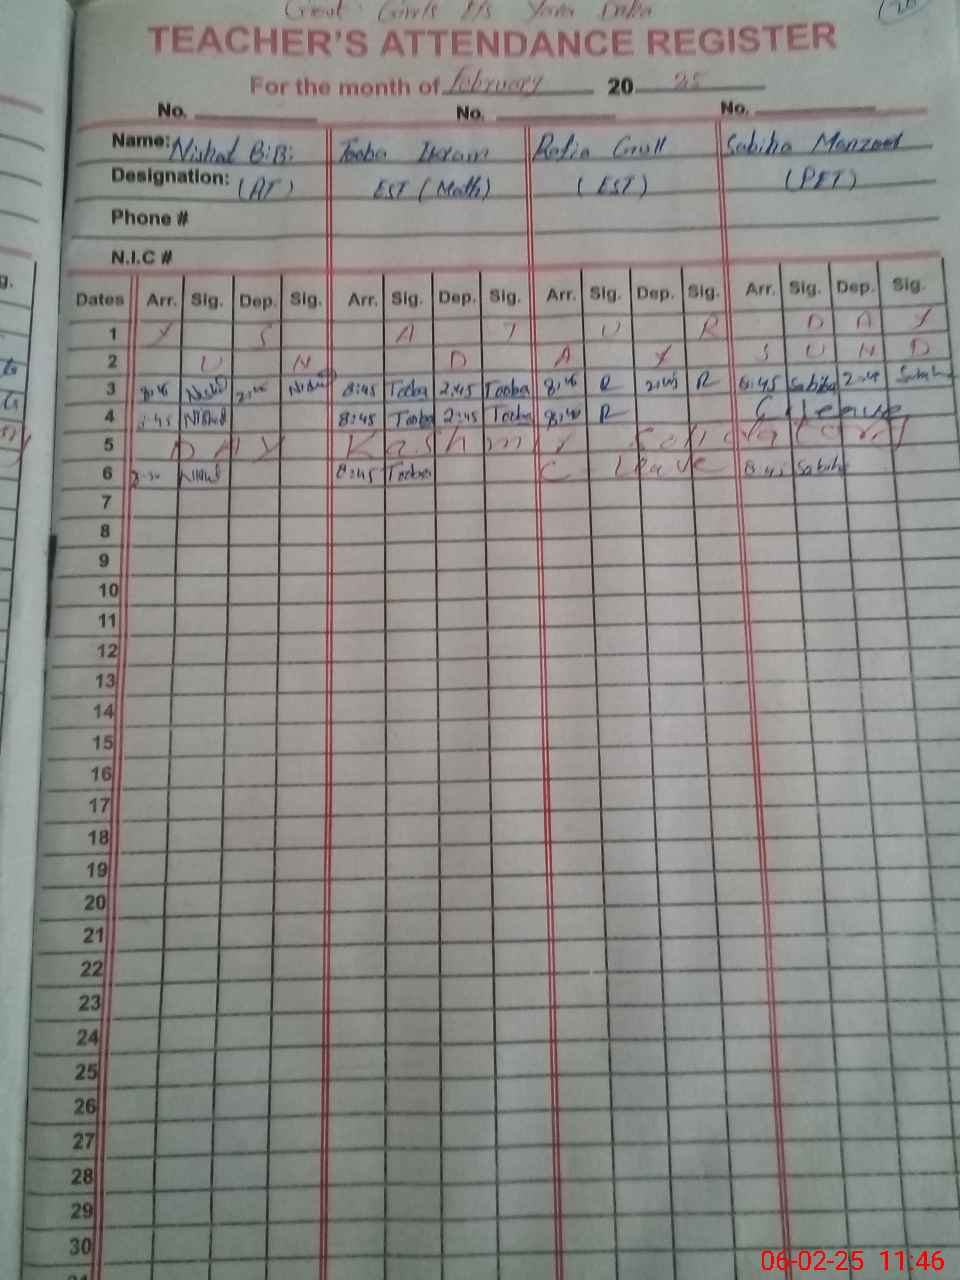 Govt Girls H/S
TEACHER'S ATTENDANCE REGISTER
For the month of February 20 25
No. No. No.
Name: Nishat BiBi Tooba Ikram Rafia Sabiha Manzoor
Designation: (AT) EST (Math) (EST) (PET)
Phone #
N.I.C #
Dates Arr. Sig. Dep. Sig. Arr. Sig. Dep. Sig. Arr. Sig. Dep. Sig. Arr. Sig. Dep. Sig.
1 Y S A T U R D A Y
2 U N D A Y S U N D
3 8:45 Tooba 2:45 Tooba R 2:45 R 8:45 Sabiha Sabiha
4 :45 Nishat 8:45 Tooba 2:45 Tooba R C leave
5 D A Y K a s h m
6 8:45 Tooba C leave 8:45 Sabiha
7
8
9
10
11
12
13
14
15
16
17
18
19
20
21
22
23
24
25
26
27
28
29
30
06-02-25 11:46